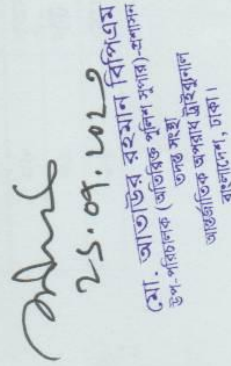 ২১.০৭.২০২০
মো. আতাউর রহমান বিপিএম
উপ-পরিচালক (অতিরিক্ত পুলিশ সুপার)-প্রশাসন
তদন্ত সংস্থা
আন্তর্জাতিক অপরাধ ট্রাইব্যুনাল
বাংলাদেশ, ঢাকা।